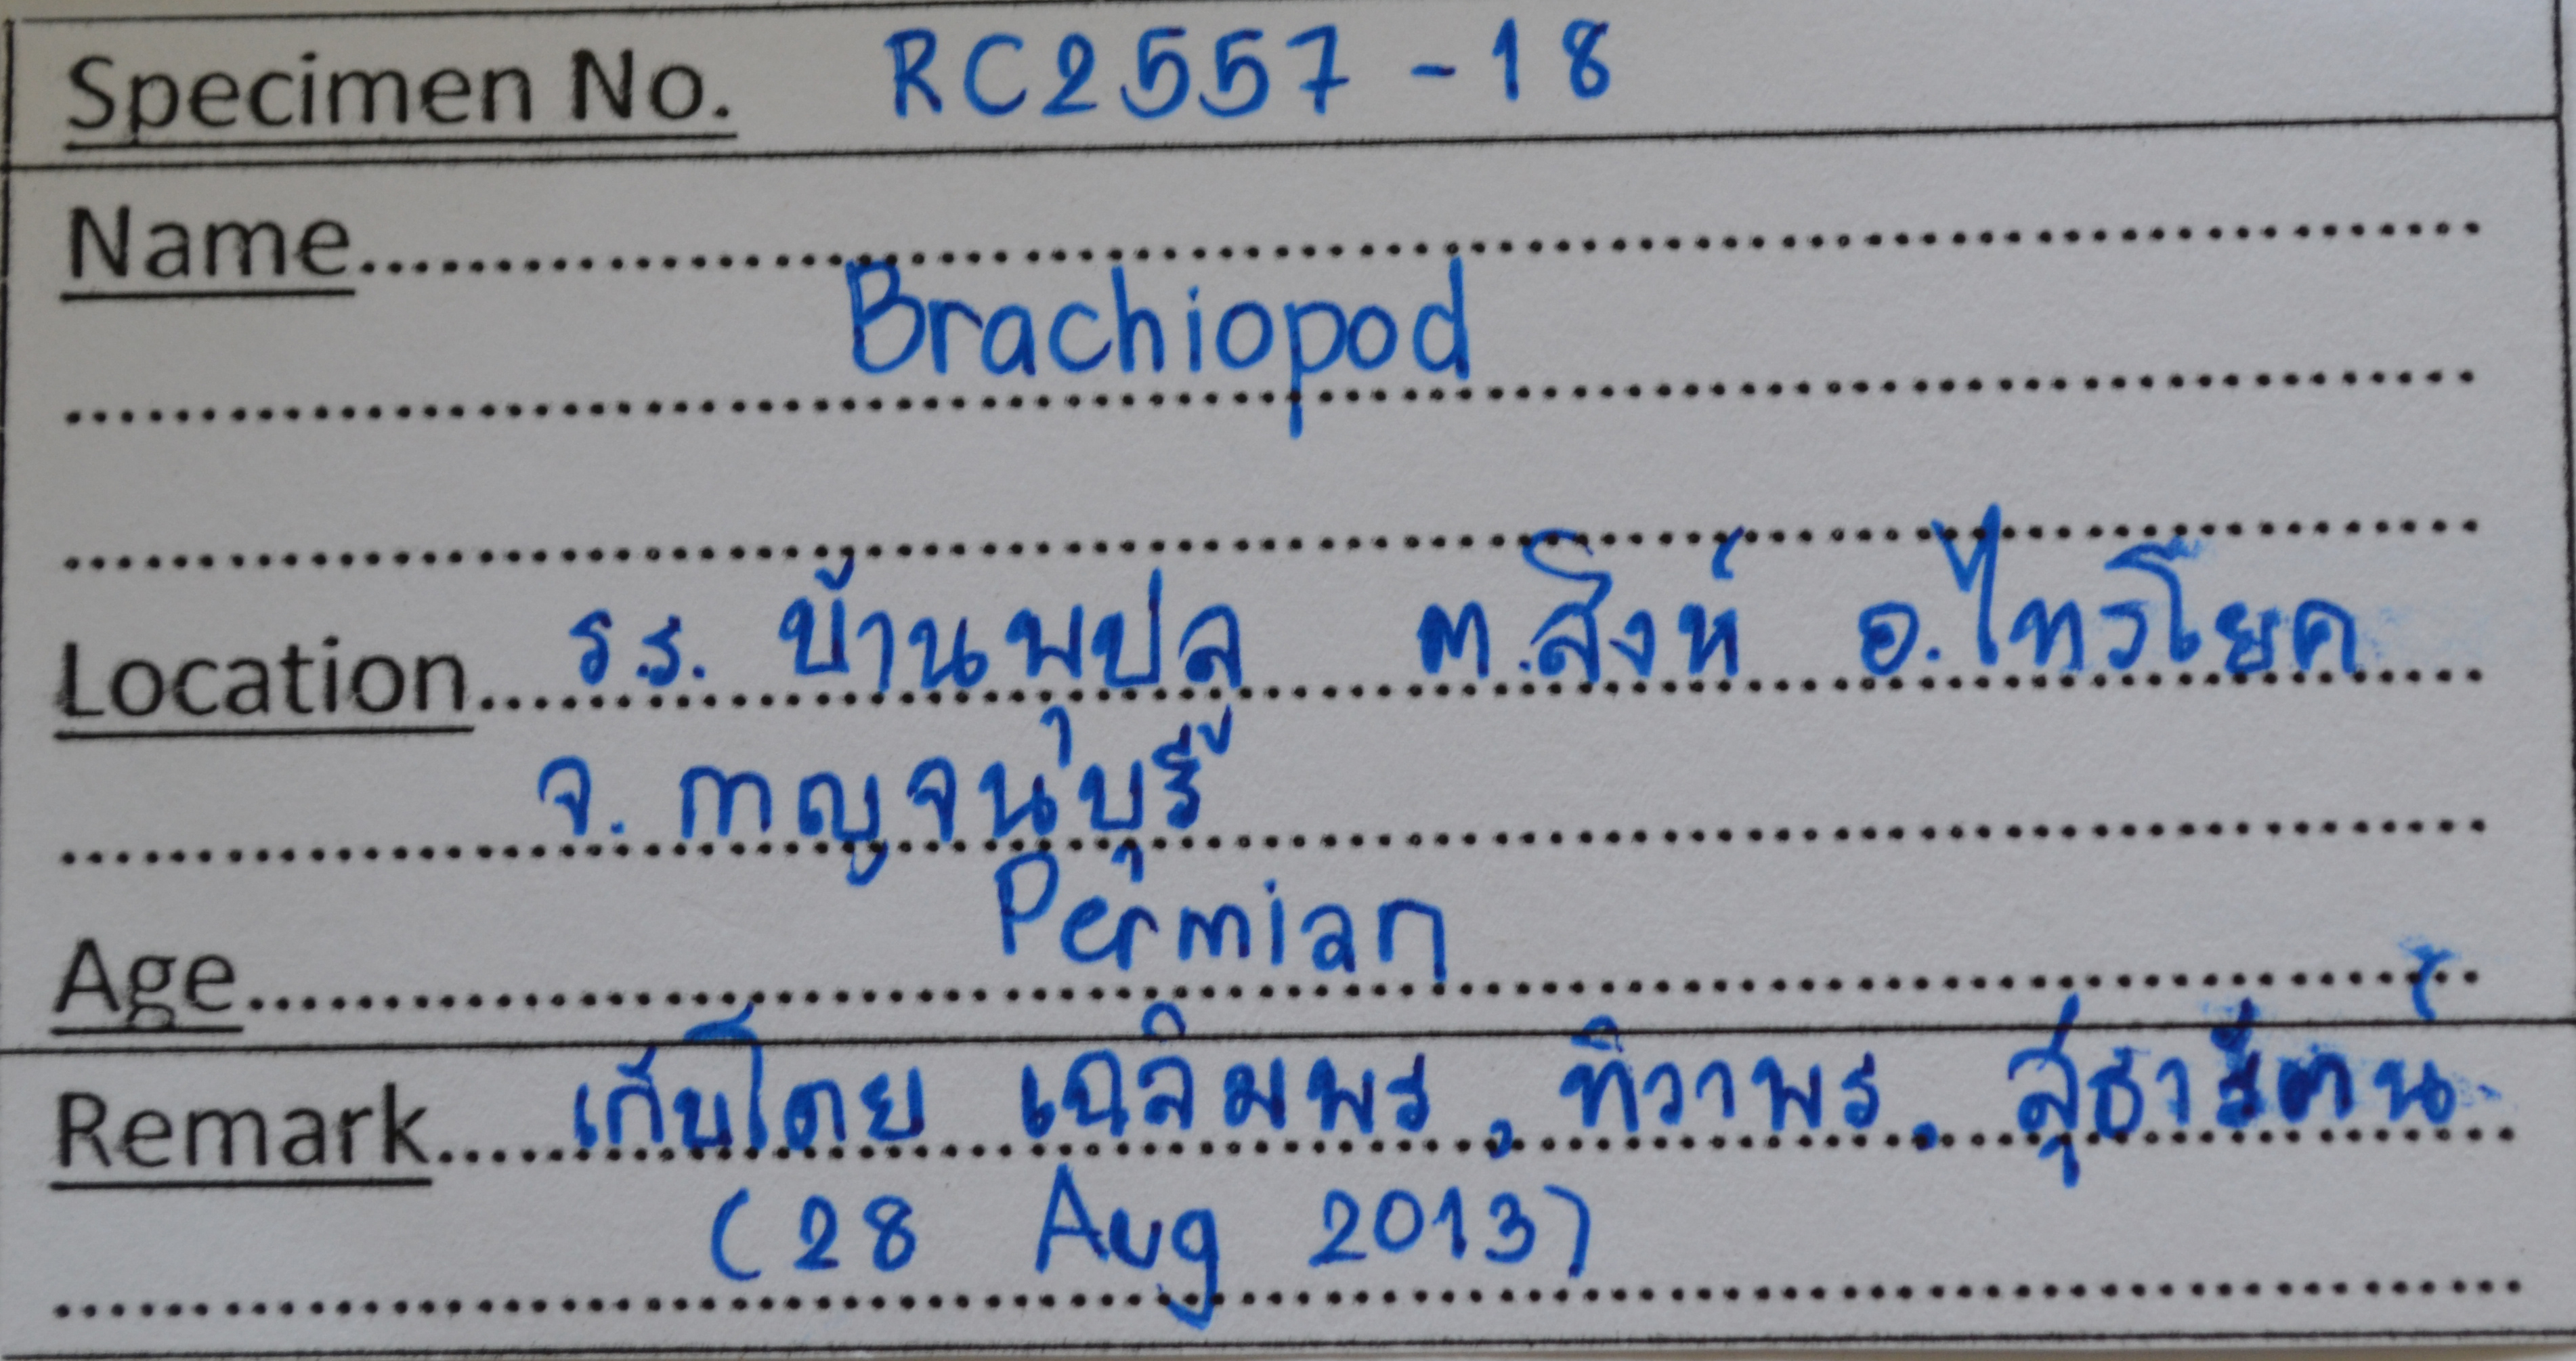 Specimen No. RC2557-18
Name
Brachiopod
Location ร.ร. บ้านพุปลู ต.สิงห์ อ.ไทรโยค
จ. กาญจนบุรี
Age Permian
Remark เก็บโดย เฉลิมพร, ทิวาพร, สุธารัตน์
(28 Aug 2013)